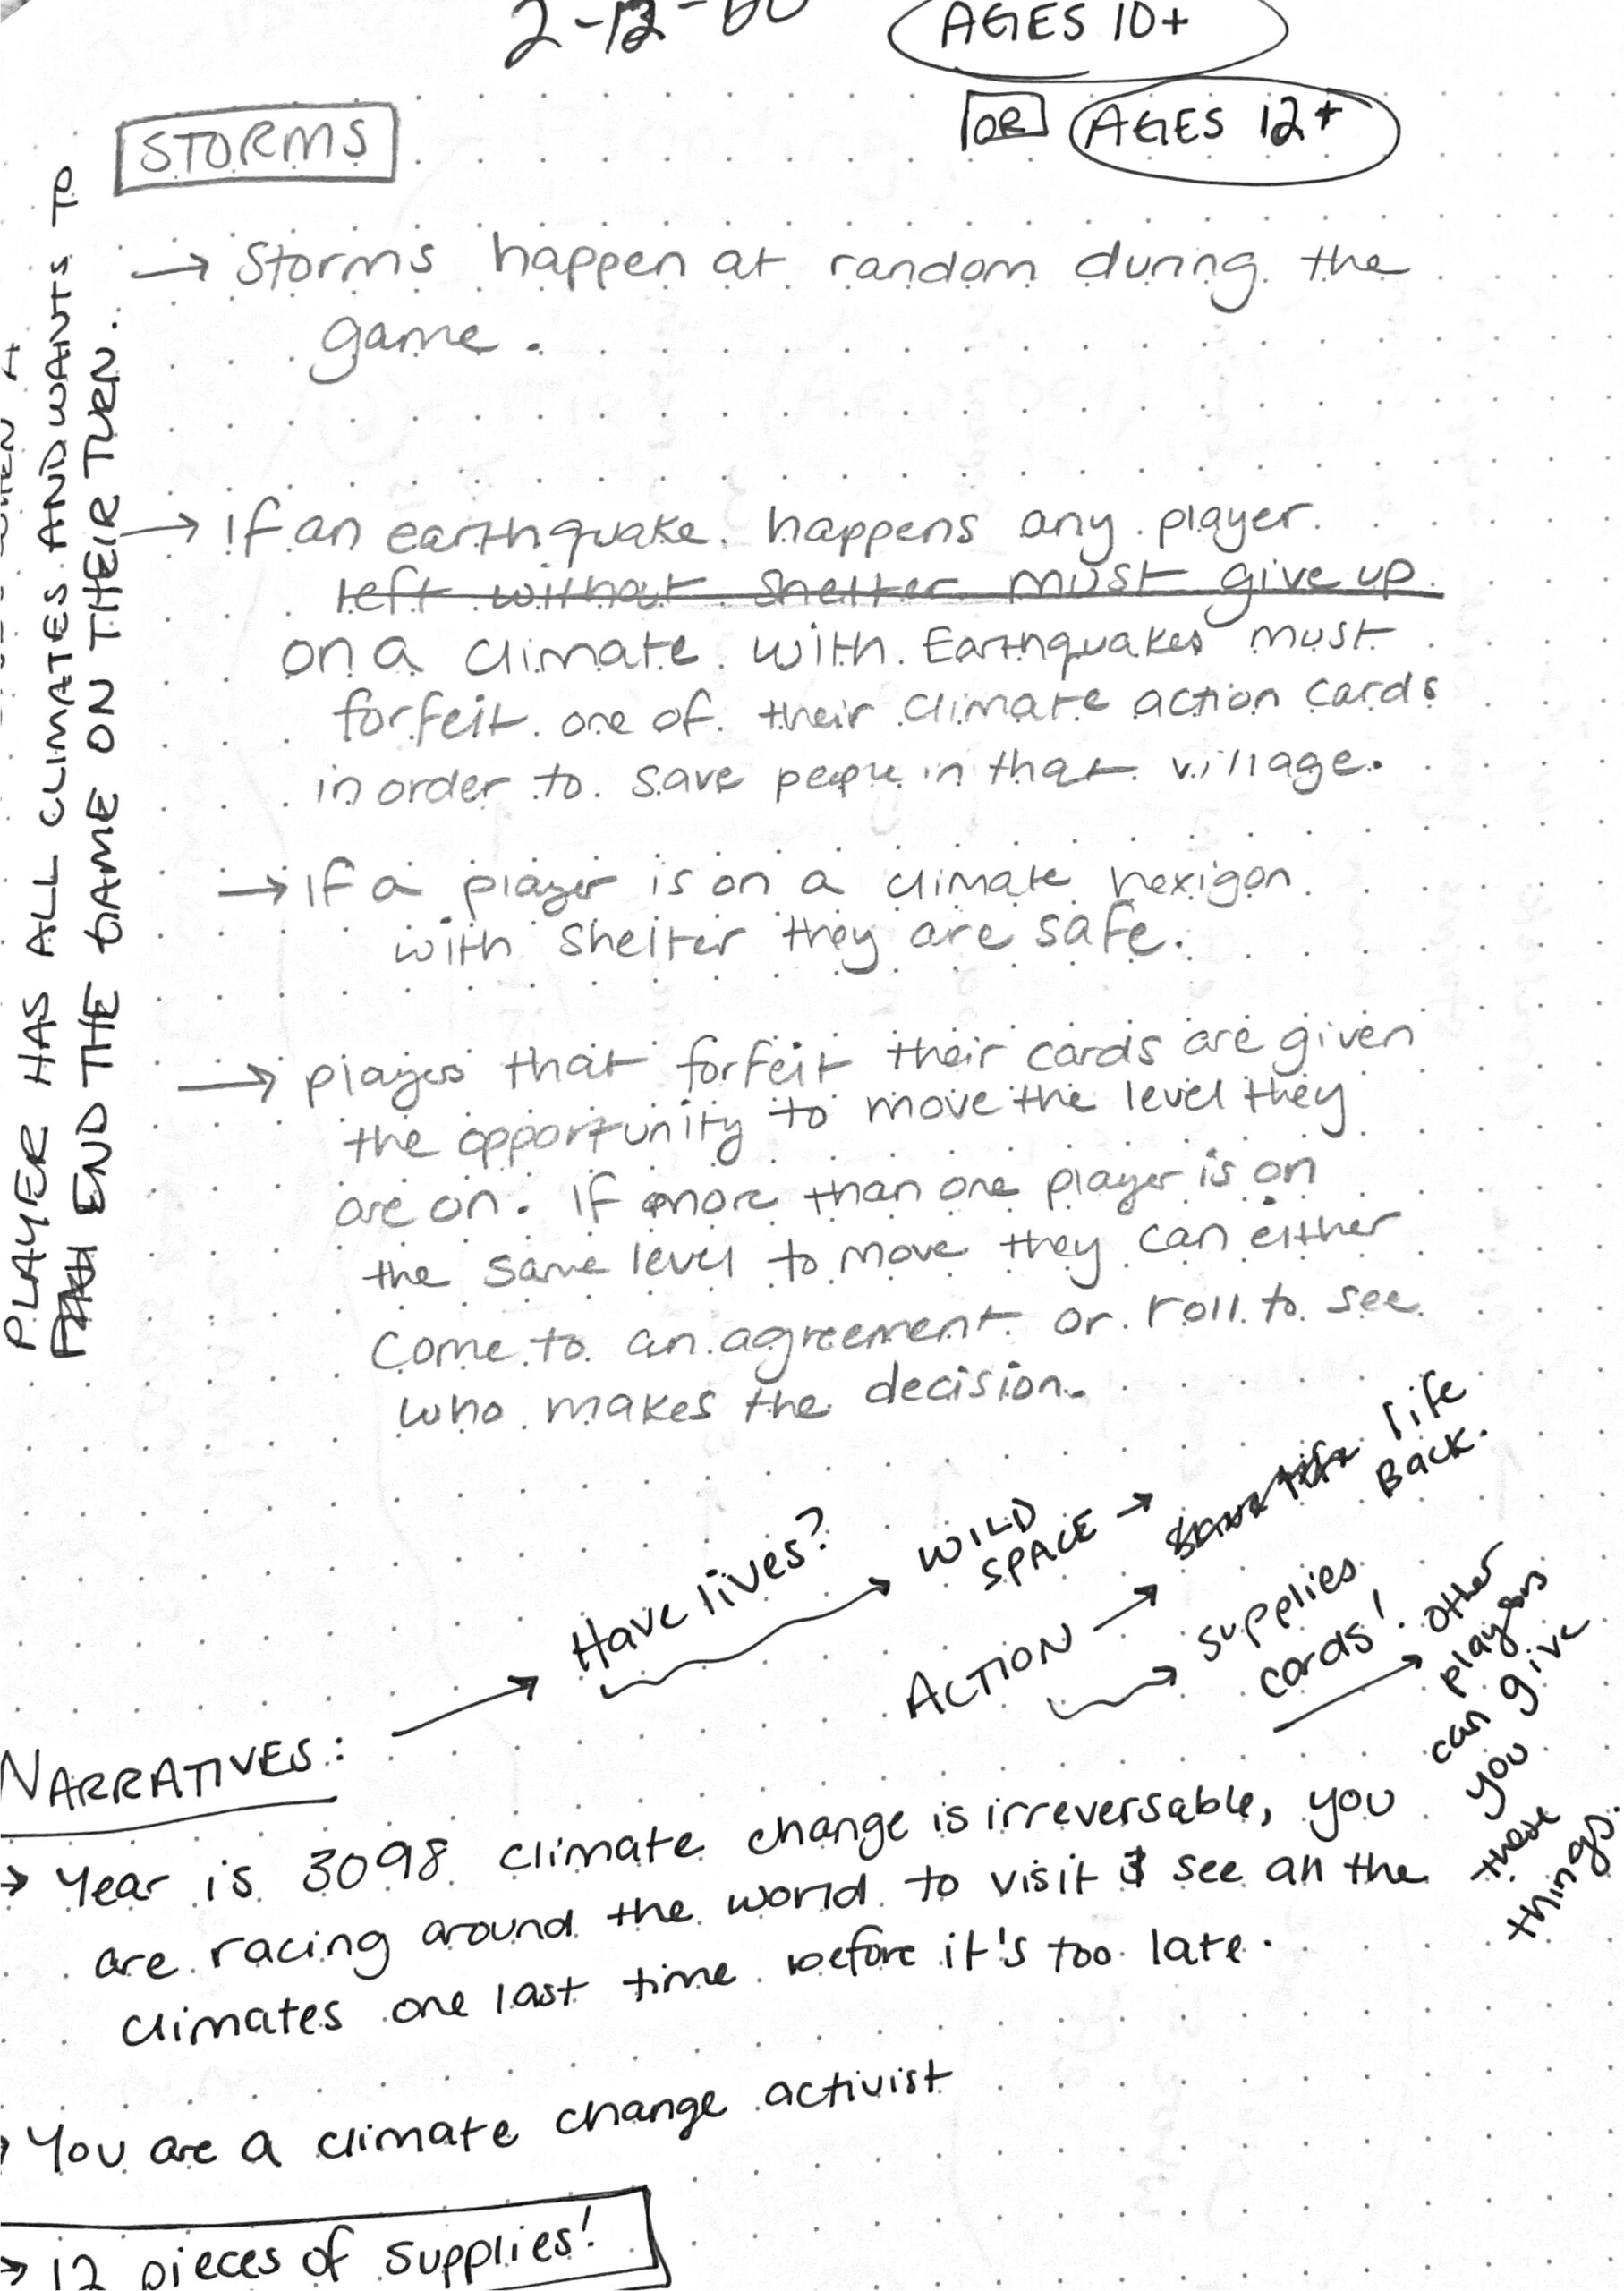 AGES 10+
OR AGES 12+
STORMS
→ Storms happen at random during the
game.
→ If an earthquake happens any player
left without shelter must give up
on a climate with Earthquakes must
forfeit one of their climate action cards
in order to save people in that village.
→ If a player is on a climate hexigon
with shelter they are safe.
→ players that forfeit their cards are given
the opportunity to move the level they
are on. If more than one player is on
the same level to move they can either
come to an agreement or roll to see
who makes the decision.
PLAYER HAS ALL CLIMATES AND WANTS TO
END THE GAME ON THEIR TURN.
NARRATIVES:
→ Have lives?
→ WILD
SPACE → life
BACK.
ACTION →
→ supplies
cards!
→ other
players
can give
you
these
things.
→ Year is 3098 climate change is irreversable, you
are racing around the world to visit & see all the
climates one last time before it's too late.
→ You are a climate change activist
→ 12 pieces of supplies!